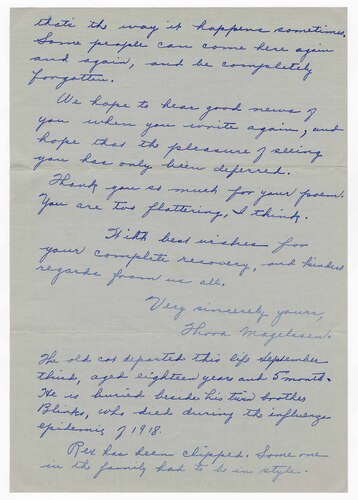 that's the way it happens sometimes.
Some people can come here again
and again, and be completely
forgotten.
We hope to hear good news of
you when you write again, and
hope that the pleasure of seeing
you has only been deferred.
Thank you so much for your poem.
You are too flattering, I think.
With best wishes for
your complete recovery, and kindest
regards from us all.
Very sincerely yours,
Thora Magelssen.
The old cat departed this life September
third, aged eighteen years and 5 months.
He is buried besides his twin brother
Blinks, who died during the influenza
epidemic of 1918.
Rex has been clipped. Some one
in the family had to be in style.